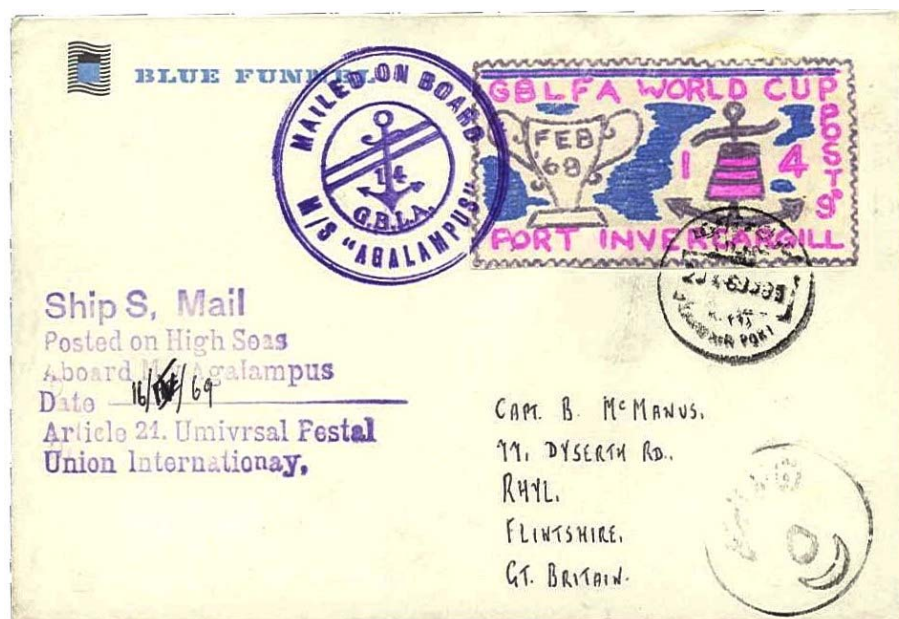 BLUE FUNNEL
MAILED ON BOARD
M/S "AGALAMPUS"
14
G.B.L.A.
GBLFA WORLD CUP
POST
9d
FEB
69
14
PORT INVERCARGILL
Ship S, Mail
Posted on High Seas
Aboard M/V Agalampus
Date 16/ /69
Article 21. Umivrsal Festal
Union Internationay,
PORT
CAPT. B. McMANUS.
77, DYSERTH RD.
RHYL.
FLINTSHIRE.
GT. BRITAIN.